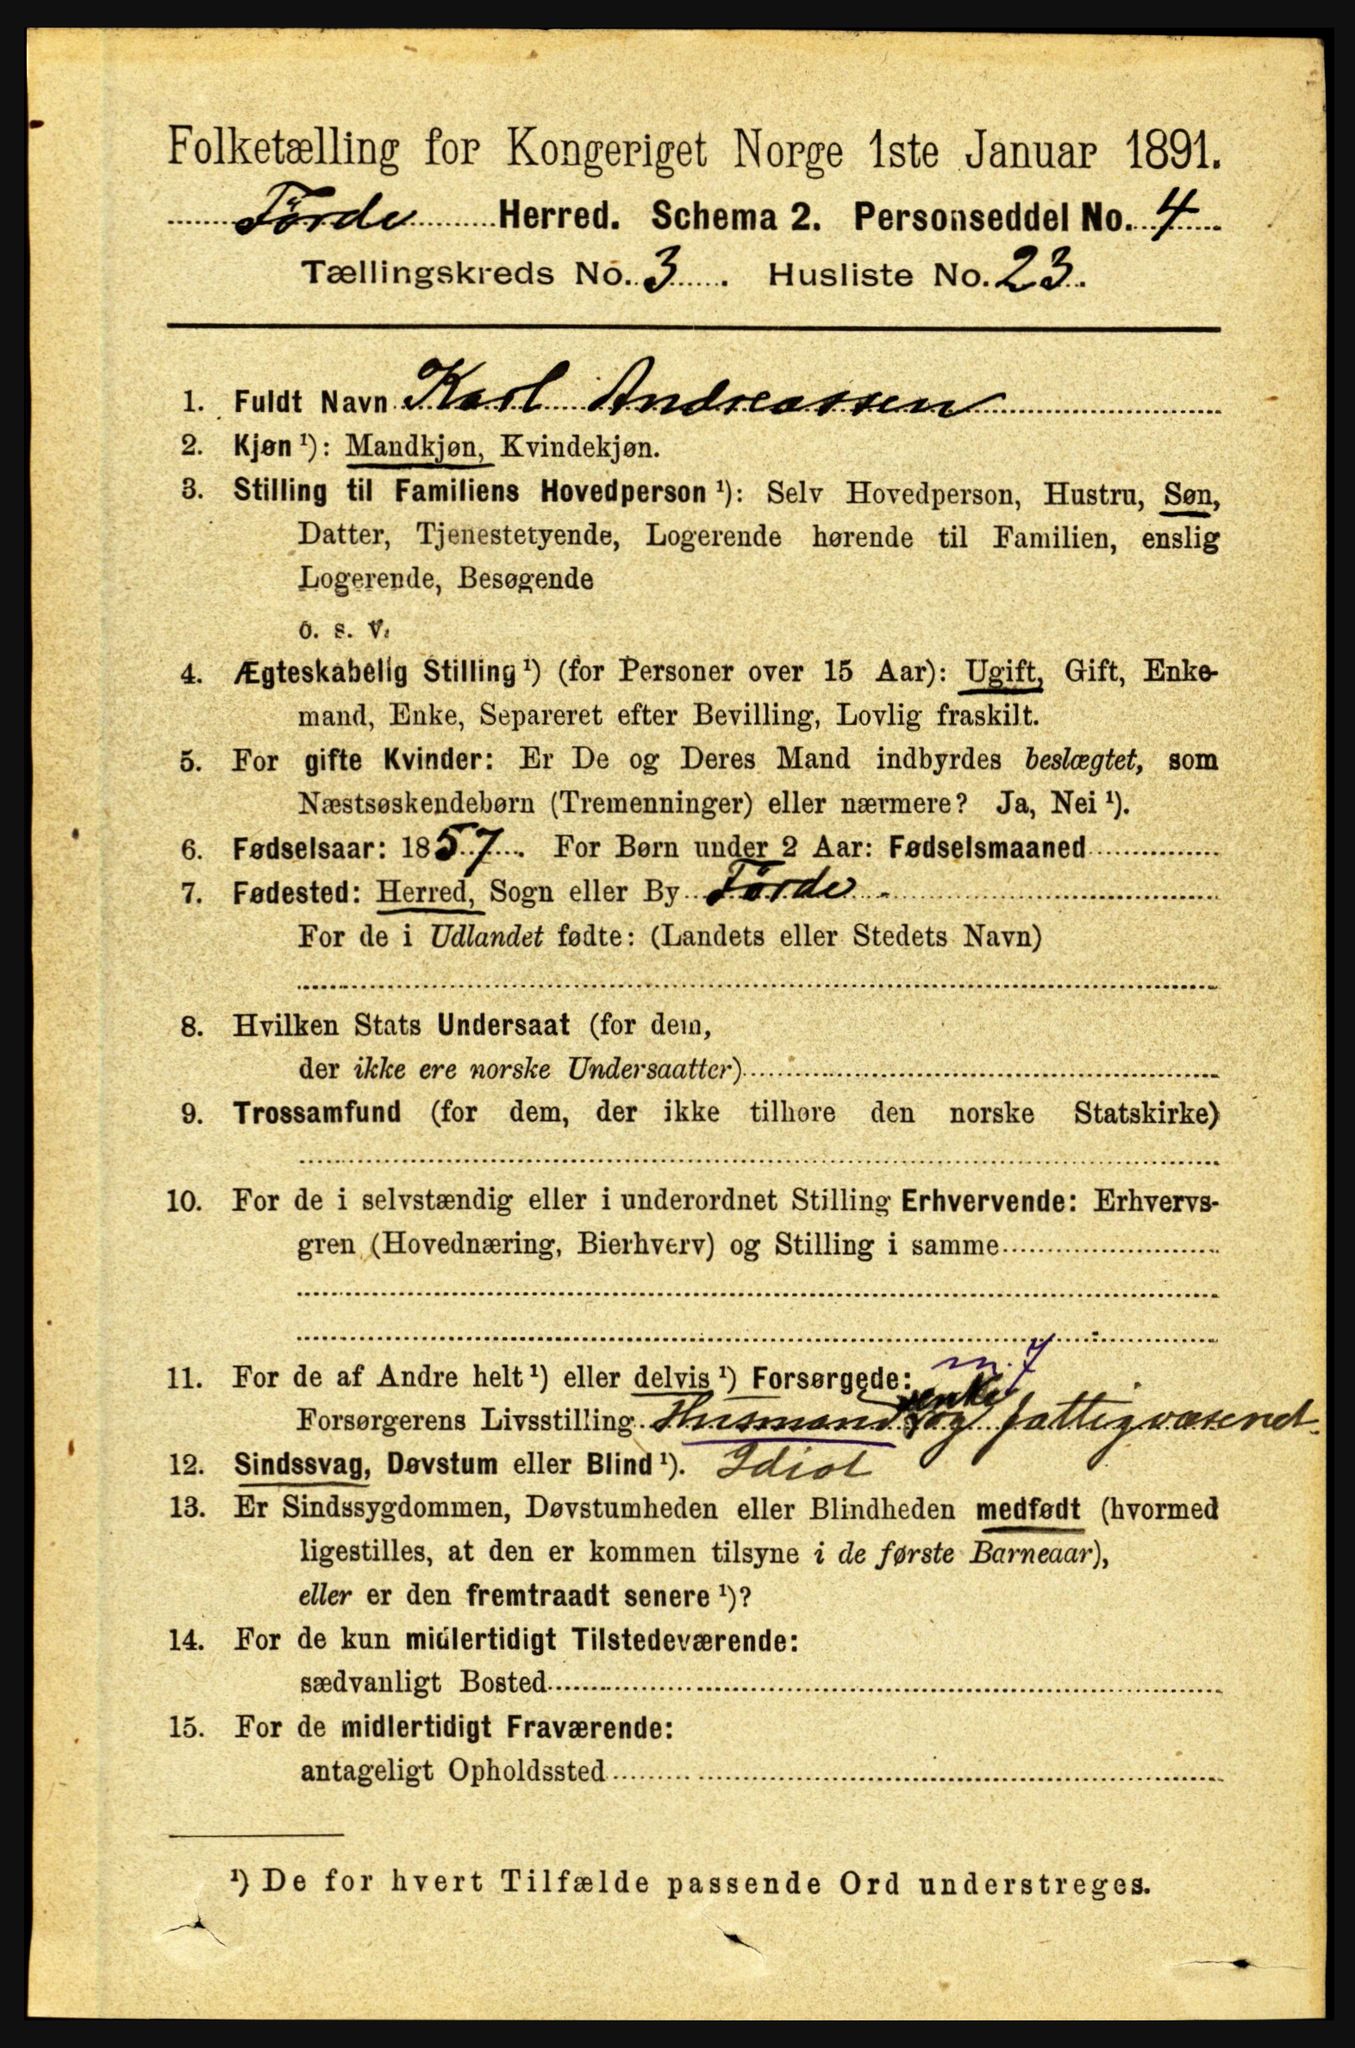 Folketælling for Kongeriget Norge 1ste Januar 1891.
Førde Herred. Schema 2. Personseddel No. 4
Tællingskreds No. 3. Husliste No. 23.
1. Fuldt Navn Karl Andreassen
2. Kjøn ¹): Mandkjøn, Kvindekjøn.
3. Stilling til Familiens Hovedperson ¹): Selv Hovedperson, Hustru, Søn,
Datter, Tjenestetyende, Logerende hørende til Familien, enslig
Logerende, Besøgende
o. s. v.
4. Ægteskabelig Stilling ¹) (for Personer over 15 Aar): Ugift, Gift, Enke-
mand, Enke, Separeret efter Bevilling, Lovlig fraskilt.
5. For gifte Kvinder: Er De og Deres Mand indbyrdes beslægtet, som
Næstsøskendebørn (Tremenninger) eller nærmere? Ja, Nei ¹).
6. Fødselsaar: 1857. For Børn under 2 Aar: Fødselsmaaned
7. Fødested: Herred, Sogn eller By Førde
For de i Udlandet fødte: (Landets eller Stedets Navn)
8. Hvilken Stats Undersaat (for dem,
der ikke ere norske Undersaatter)
9. Trossamfund (for dem, der ikke tilhøre den norske Statskirke)
10. For de i selvstændig eller i underordnet Stilling Erhvervende: Erhvervs-
gren (Hovednæring, Bierhverv) og Stilling i samme
m. 7
11. For de af Andre helt ¹) eller delvis ¹) Forsørgede:
enke
Forsørgerens Livsstilling Husmands og fattigvæsenet.
12. Sindssvag, Døvstum eller Blind ¹). Idiot
13. Er Sindssygdommen, Døvstumheden eller Blindheden medfødt (hvormed
ligestilles, at den er kommen tilsyne i de første Barneaar),
eller er den fremtraadt senere ¹)?
14. For de kun midlertidigt Tilstedeværende:
sædvanligt Bosted
15. For de midlertidigt Fraværende:
antageligt Opholdssted
¹) De for hvert Tilfælde passende Ord understreges.